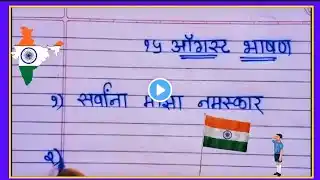 १५ ऑगस्ट भाषण
१) सर्वांना माझा नमस्कार
२)